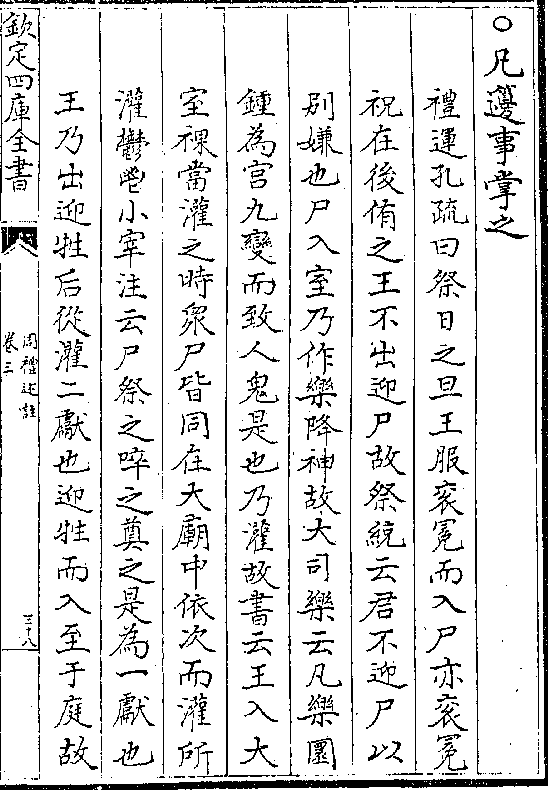 ○凡籩事掌之
禮運孔疏曰祭日之旦王服衮冕而入尸亦衮冕
祝在後侑之王不出迎尸故祭統云君不迎尸以
别嫌也尸入室乃作樂降神故大司樂云凡樂圜
鍾為宫九變而致人鬼是也乃灌故書云王入大
室祼當灌之時衆尸皆同在大廟中依次而灌所
灌鬱鬯小宰注云尸祭之啐之奠之是為一獻也
王乃出迎牲后從灌二獻也迎牲而入至于庭故
欽定四庫全書
周禮述註
卷三
三十八